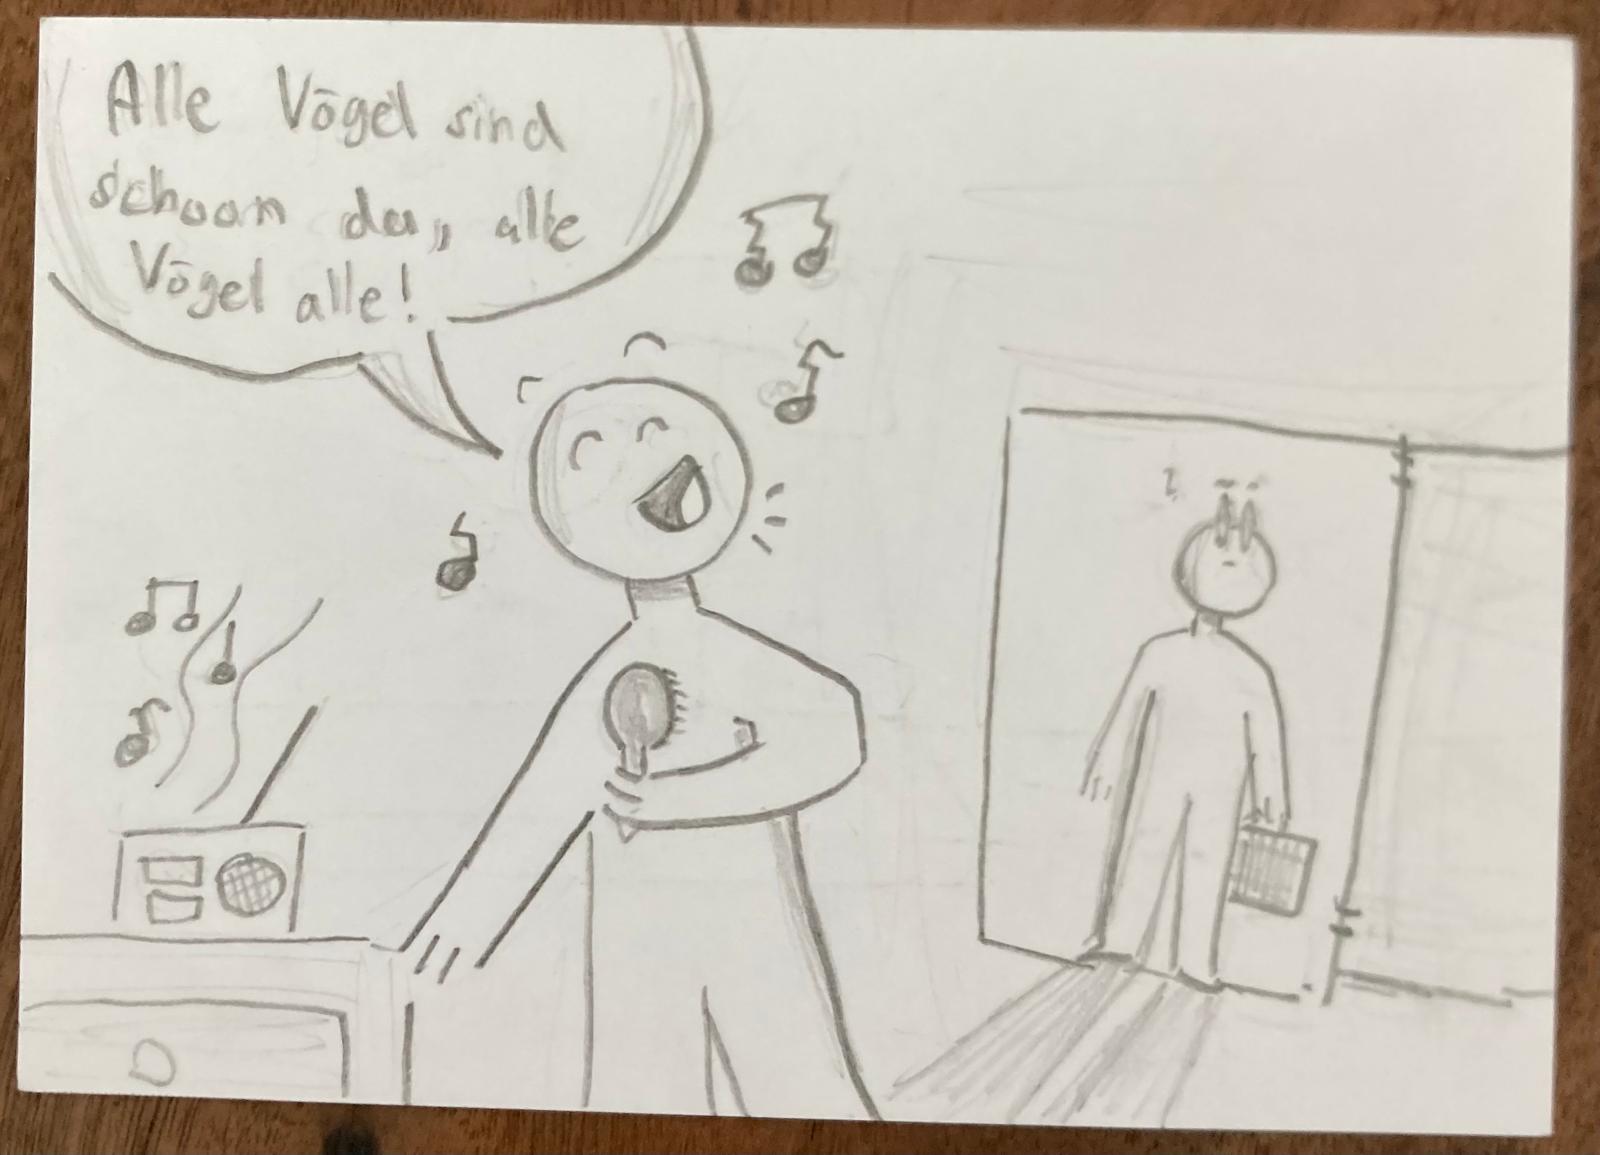 Alle Vögel sind
schoon da,, alle
Vögel alle!